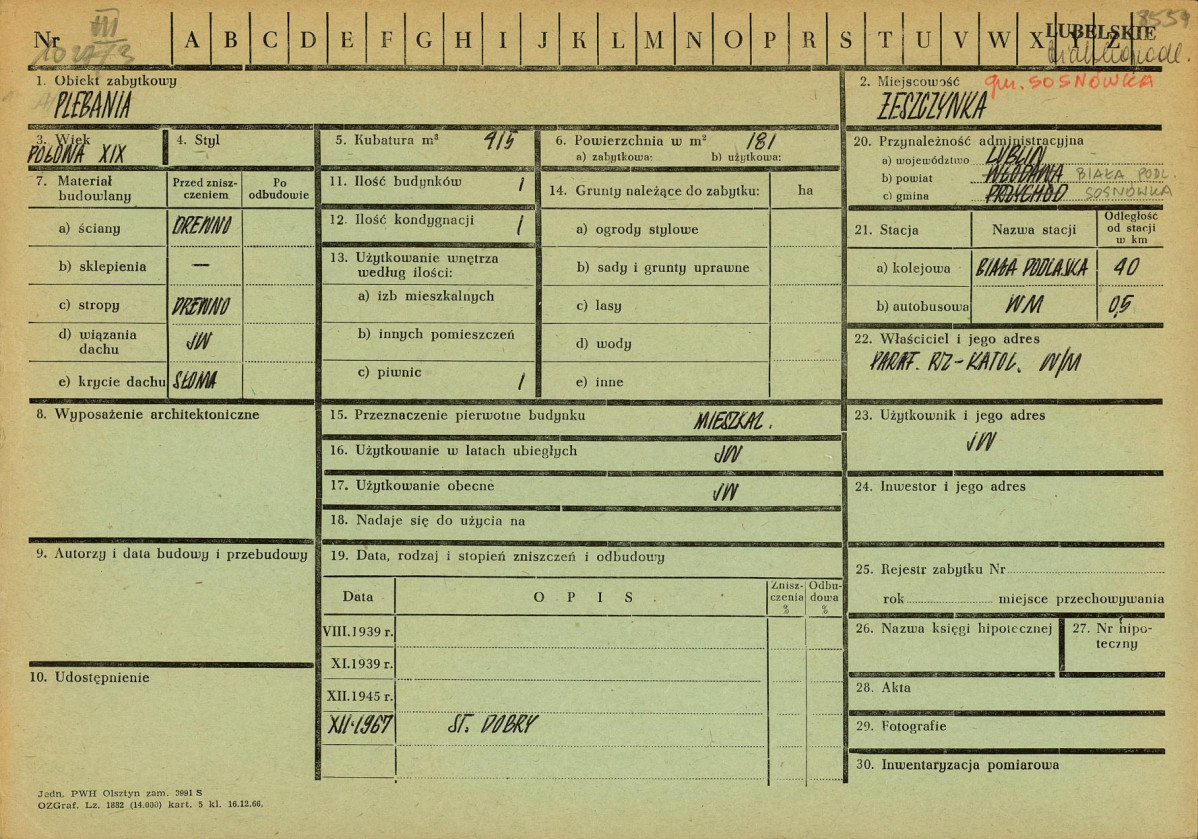 Nr A B C D E F G H I J K L M N O P R S T U V W X Y Z LUBELSKIE
III
8559
1. Obiekt zabytkowy
PLEBANIA
2. Miejscowość gm. SOSNÓWKA
ŻESZCZYNKA
3. Wiek
POŁOWA XIX
4. Styl
5. Kubatura m³ 915
6. Powierzchnia w m² 181
a) zabytkowa: b) użytkowa:
7. Materiał budowlany
Przed znisz-
czeniem
Po
odbudowie
a) ściany DREWNO
b) sklepienia —
c) stropy DREWNO
d) wiązania
dachu JW
e) krycie dachu SŁOMA
8. Wyposażenie architektoniczne
9. Autorzy i data budowy i przebudowy
10. Udostępnienie
11. Ilość budynków 1
12. Ilość kondygnacji 1
13. Użytkowanie wnętrza
według ilości:
a) izb mieszkalnych
b) innych pomieszczeń
c) piwnic 1
14. Grunty należące do zabytku: ha
a) ogrody stylowe
b) sady i grunty uprawne
c) lasy
d) wody
e) inne
15. Przeznaczenie pierwotne budynku MIESZKAL.
16. Użytkowanie w latach ubiegłych JW
17. Użytkowanie obecne JW
18. Nadaje się do użycia na
19. Data, rodzaj i stopień zniszczeń i odbudowy
Data OPIS
Znisz-
czenia
%
Odbu-
dowa
%
VIII.1939 r.
XI.1939 r.
XII.1945 r.
XII.1967 ST. DOBRY
20. Przynależność administracyjna
a) województwo LUBLIN
b) powiat WŁODAWA BIAŁA PODL.
c) gmina PRZYCHOD SOSNÓWKA
21. Stacja Nazwa stacji
Odległość
od stacji
w km
a) kolejowa BIAŁA PODLASKA 40
b) autobusowa WM 0,5
22. Właściciel i jego adres
PARAF. RZ-KATOL. W/M
23. Użytkownik i jego adres
JW
24. Inwestor i jego adres
25. Rejestr zabytku Nr
rok miejsce przechowywania
26. Nazwa księgi hipotecznej
27. Nr hipo-
teczny
28. Akta
29. Fotografie
30. Inwentaryzacja pomiarowa
Jedn. PWH Olsztyn zam. 3991 S
OZGraf. Lz. 1882 (14.000) kart. 5 kl. 16.12.66.